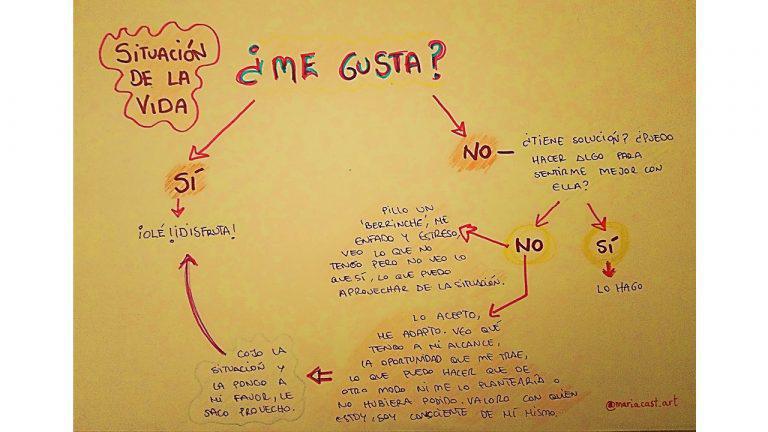 SITUACIÓN
DE LA
VIDA
¿ME GUSTA?
SÍ
¡OLÉ! ¡DISFRUTA!
NO –
¿TIENE SOLUCIÓN? ¿PUEDO
HACER ALGO PARA
SENTIRME MEJOR CON
ELLA?
NO
SÍ
LO HAGO
PILLO UN
'BERRINCHE', ME
ENFADO Y ESTRESO,
VEO LO QUE NO
TENGO PERO NO VEO LO
QUE SÍ, LO QUE PUEDO
APROVECHAR DE LA SITUACIÓN.
LO ACEPTO,
ME ADAPTO. VEO QUÉ
TENGO A MI ALCANCE,
LA OPORTUNIDAD QUE ME TRAE,
LO QUE PUEDO HACER QUE DE
OTRO MODO NI ME LO PLANTEARÍA O
NO HUBIERA PODIDO. VALORO CON QUIEN
ESTOY, SOY CONSCIENTE DE MÍ MISMO.
COJO LA
SITUACIÓN Y
LA PONGO A
MI FAVOR, LE
SACO PROVECHO.
@mariacast_art